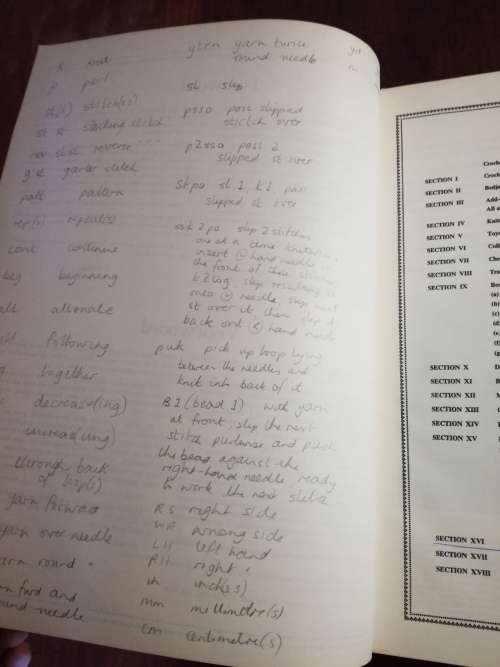 k knit
p purl
st(s) stitch(es)
st st stocking stitch
rev st st reverse " " "
g st garter stitch
patt pattern
rep(s) repeat(s)
cont continue
beg beginning
alt alternate
following
together
decreas(ing)
increas(ing)
through back
of loop(s)
yarn forward
yarn over needle
yarn round "
fwd and
round needle
ytrn yarn twice
round needle
sl slip
psso pass slipped
stictch over
p2sso pass 2
slipped st over
skpo sl 1, k1, pass
slipped st over
ssk2po slip 2 stitches
one at a time knitwise,
insert hand needle in
the front of these stitches
k2tog slip resulting st
onto needle, slip next
st over it, then slip it
back ont hand needle
puk pick up loop lying
between the needles and
knit into back of it
B1 (bead 1) with yarn
at front, slip the next
stitch purlwise and push
the bead against the
right-hand needle, ready
to work the next stitch
RS right side
WR wrong side
LH left hand
RH right "
in inch(es)
mm millimetre(s)
cm centimetre(s)
SECTION I Croch
SECTION II Bedja
SECTION III Add-
All a
SECTION IV Knit
SECTION V Toys
SECTION VI Coll
SECTION VII Che
SECTION VIII Tra
SECTION IX Bea
(a)
(b)
(c)
(d)
(e)
(f)
(g)
SECTION X D
SECTION XI
SECTION XII M
SECTION XIII
SECTION XIV
SECTION XV
SECTION XVI
SECTION XVII
SECTION XVIII